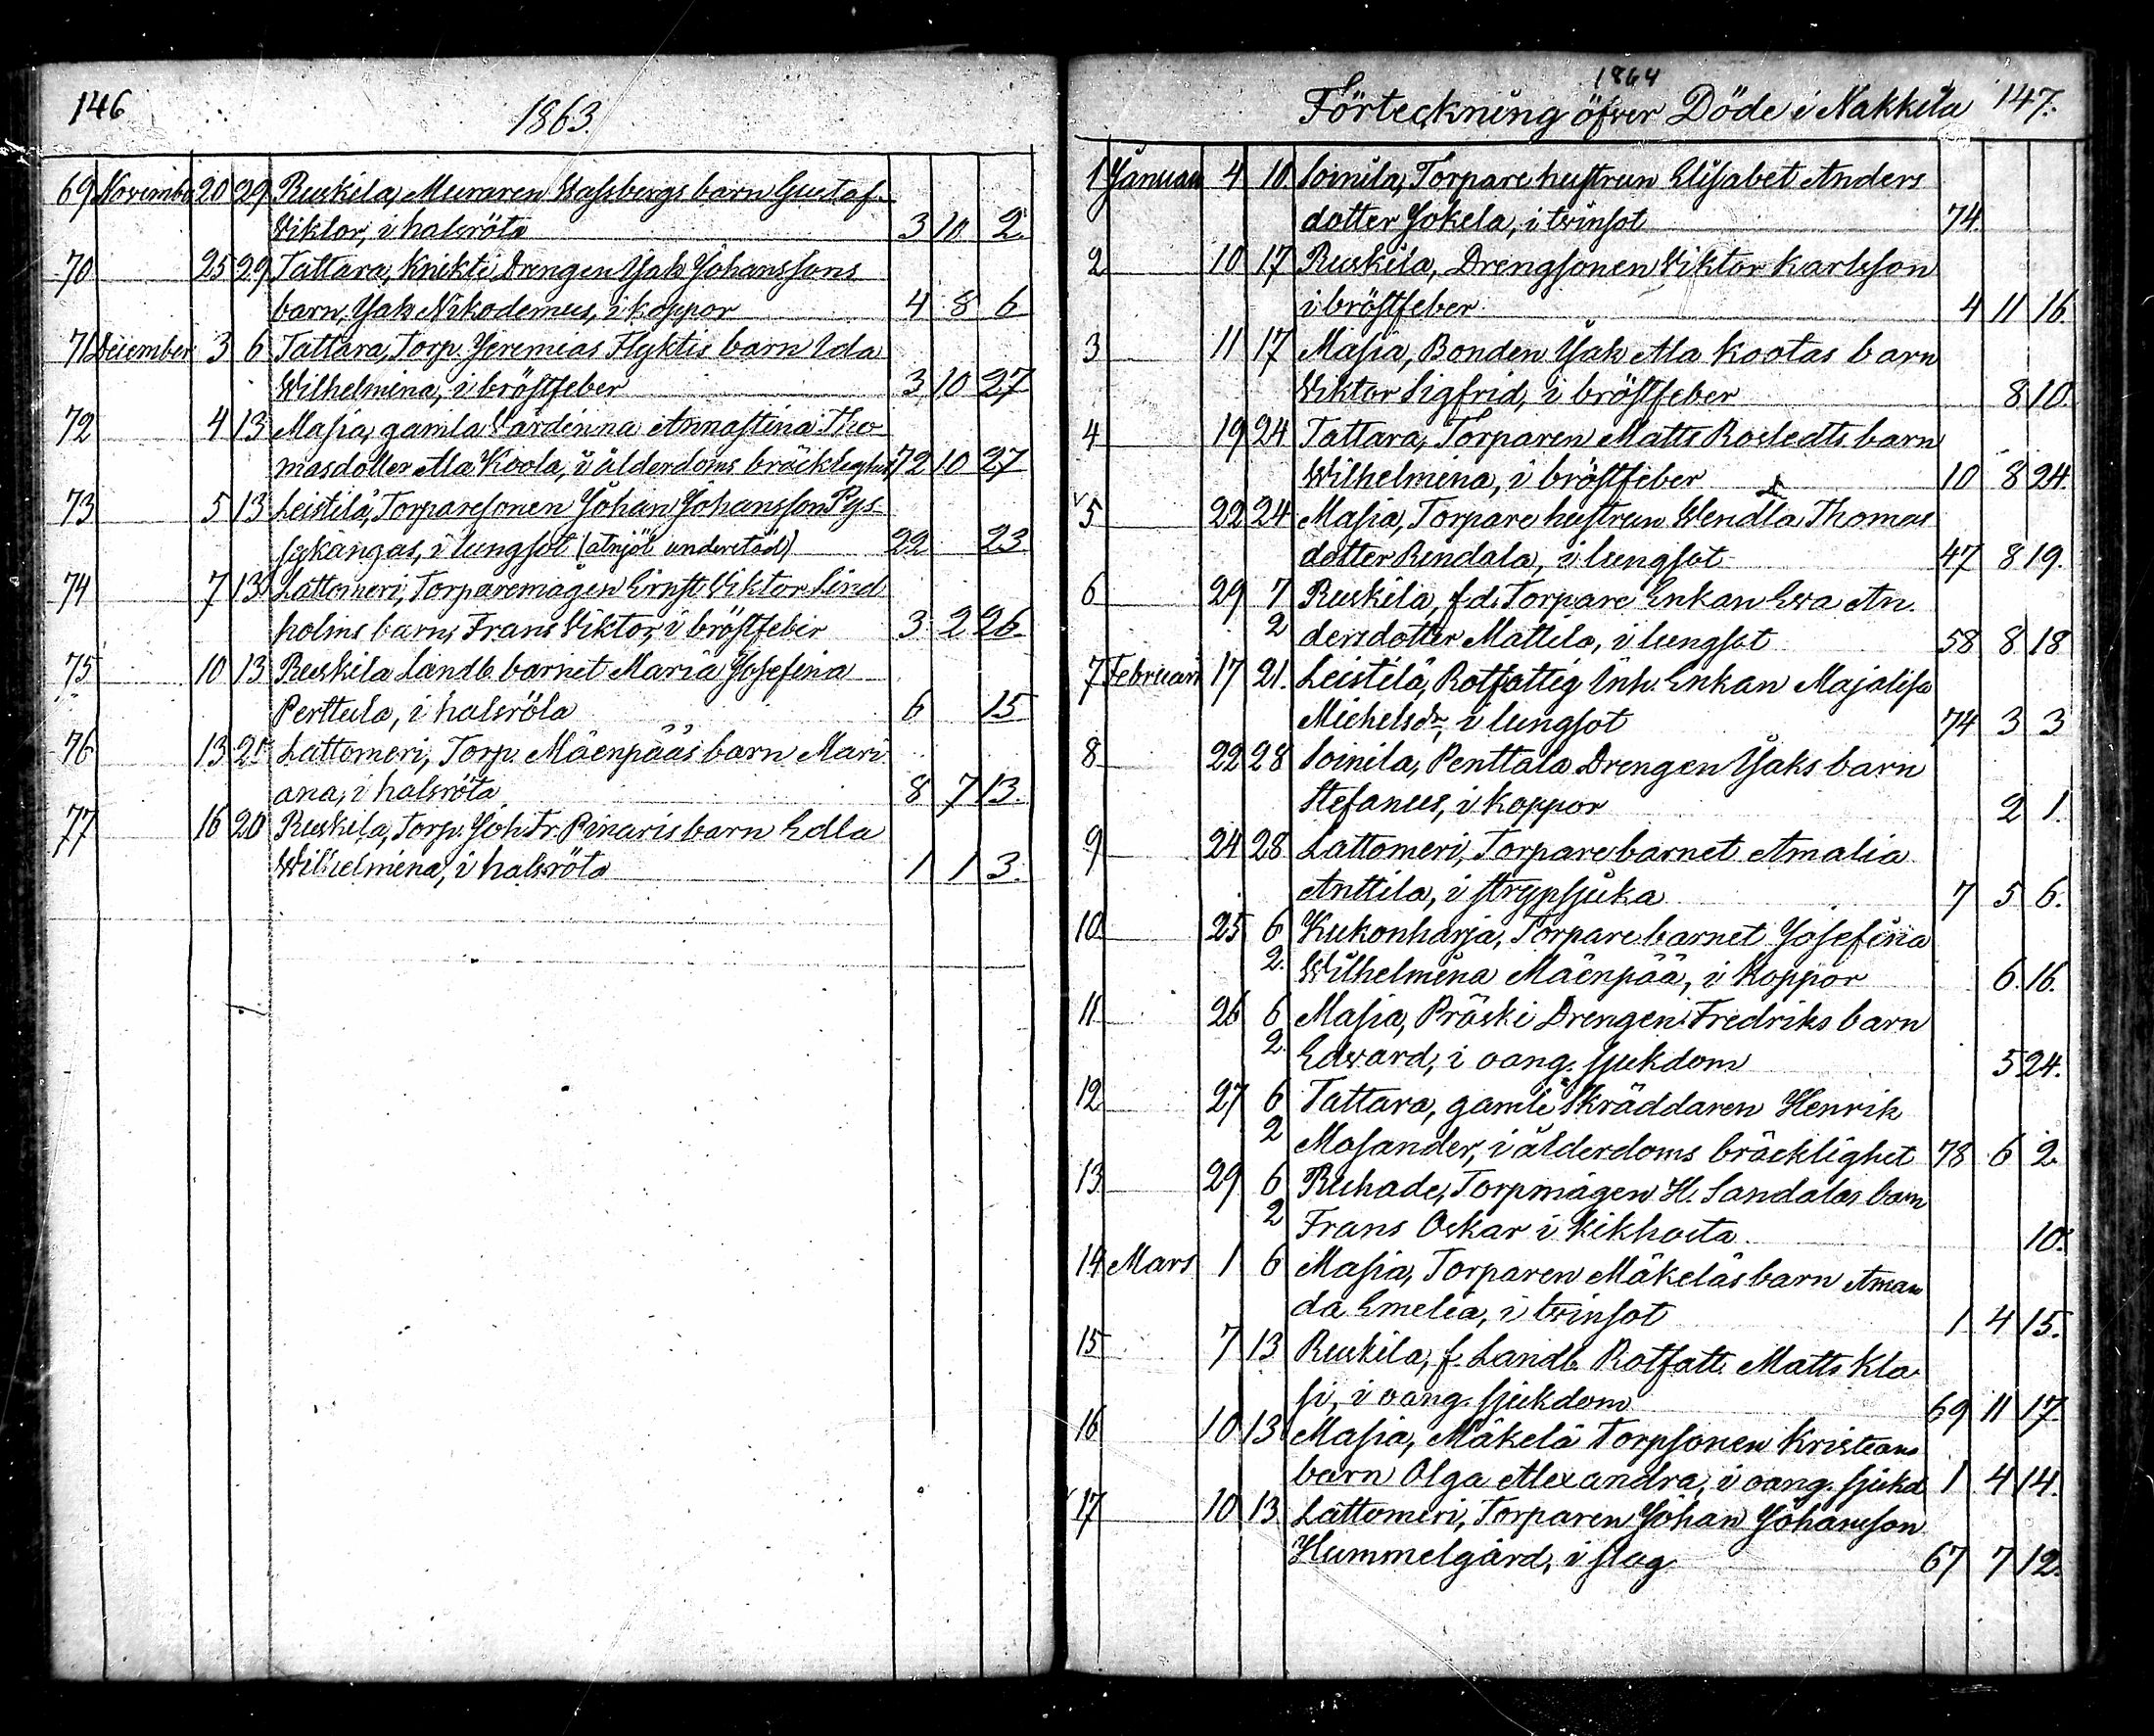 146
1863.
69 November 20 29 Ruskila, Muraren Wassbergs barn Gustaf
Viktor, i halsröta 3 10 2.
70 25 29 Tattara, Knikti Drengen Isak Johanssons
barn, Isak Nikodemus, i koppor 4 8 6
71 December 3 6 Tattara, Torp. Jeremias Flyktis barn Ida
Wilhelmina, i bröstfeber 3 10 27
72 4 13 Masia, gamla Värdinna Annastina Tho-
masdotter Ala Koota, i ålderdoms bräcklighet 72 10 27
73 5 13 Leistilä, Torparesonen Johan Johansson Pys-
sykangas, i lungsot (atnjöt understöd) 22 23
74 7 13 Lattomeri, Torparemågen Ernst Viktor Lind
holms barn, Frans Viktor, i bröstfeber 3 2 26.
75 10 13 Ruskila Landb. barnet Maria Josefina
Perttula, i halsröta 6 15
76 13 Lattomeri, Torp. Mäenpääs barn Mari
ana, i halsröta 8 7 13.
77 16 20 Ruskila, Torp. Joh. Fr. Pinaris barn Edla
Wilhelmina, i halsröta 1 1 3.
1864
Förteckning öfver Döde i Nakkila 147.
1 Januari 4 10 Soinila, Torpare hustrun Elisabet Anders
dotter Jokela, i tvinsot 74.
2 10 17 Ruskila, Drengsonen Viktor Karlsson
i bröstfeber 4 11 16.
3 11 17 Masia, Bonden Isak Ala Kootas barn
Viktor Sigfrid, i bröstfeber 8 10.
4 19 24 Tattara, Torparen Matts Rostedts barn
Wilhelmina, i bröstfeber 10 8 24.
5 22 24 Masia, Torpare hustrun Wendla Thomas
dotter Rendala, i lungsot 47 8 19.
6 29 7 Ruskila, f.d. Torpare Enkan Eva An-
2 dersdotter Mattila, i lungsot 58 8 18
7 Februari 17 21. Leistilä, Rotfattig Inh. Enkan Majalisa
Michelsdr, i lungsot 74 3 3
8 22 28 Soinila, Penttala Drengen Isaks barn
Stefanus, i koppor 2 1.
9 24 28 Lattomeri, Torpare barnet Amalia
Anttila, i strypsjuka 7 5 6.
10 25 6 Kukonharja, Torpare barnet Josefina
2. Wilhelmina Mäenpää, i Koppor 6. 16.
11 26 6 Masia, Präski Drengen Fredriks barn
2. Edvard, i oang. sjukdom 5 24.
12 27 6 Tattara, gamle Skräddaren Henrik
2 Mosander, i ålderdoms bräcklighet 78 6 2.
13 29 6 Ruhade, Torpmågen H. Sandalas barn
2 Frans Oskar i Kikhosta 10.
14 Mars 1 6 Masia, Torparen Mäkeläs barn Aman
da Emelia, i tvinsot 1 4 15.
15 7 13 Ruskila, f. Landb. Rotfatt. Matts Kla-
si, i oang. sjukdom 69 11 17.
16 10 13 Masia, Mäkelä Torpsonen Kristians
barn Olga Alexandra, i oang. sjukd. 1 4 14.
17 10 13 Lattomeri, Torparen Johan Johansson
Hummelgård, i slag 67 7 12.